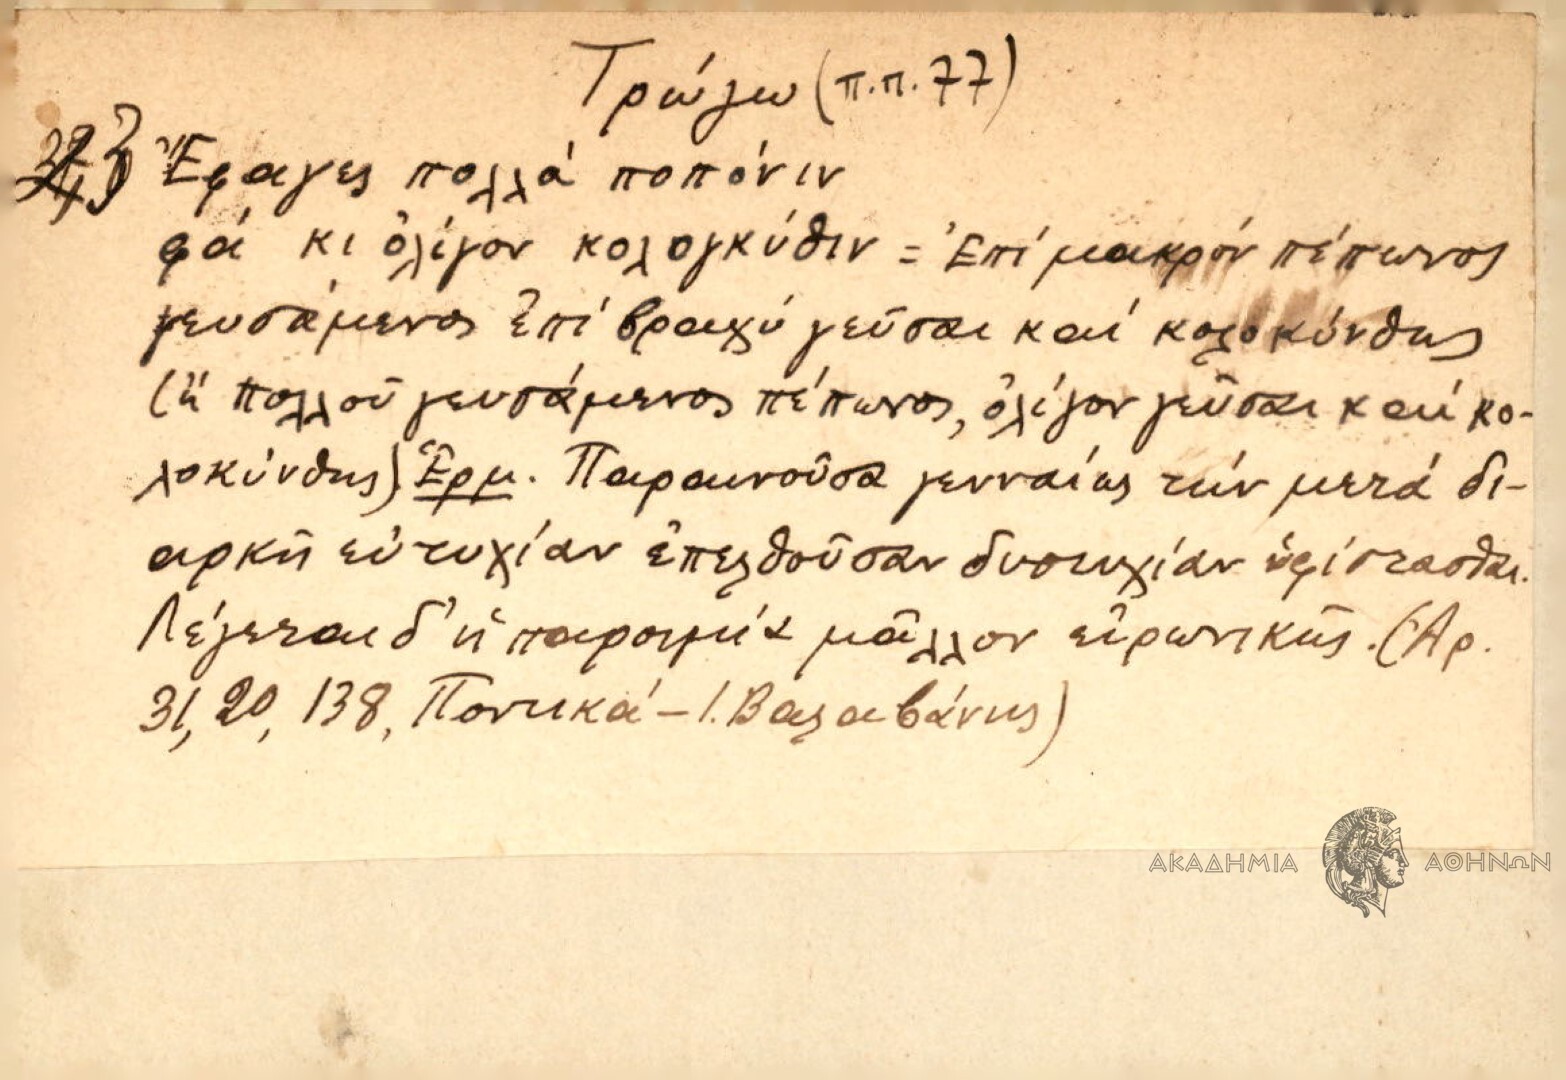 Τρώγω (π.π. 77)
Ἔφαγες πολλά ποπόνιν
φά κι ὀλίγον κολογκύθιν = Ἐπί μακρόν πέπωνος
γευσάμενος ἐπί βραχύ γεῦσαι καί κολοκύνθης
(ἤ πολλοῦ γευσάμενος πέπωνος, ὀλίγον γεῦσαι καί κο-
λοκύνθης) Ἑρμ. Παραινοῦσα γενναίως τήν μετά δι-
αρκῆ εὐτυχίαν ἐπελθοῦσαν δυστυχίαν ὑφίστασθαι.
Λέγεται δ' ἡ παροιμία μᾶλλον εἰρωνικῆς. (Ἀρ.
31, 20, 138, Ποντικά - Ι. Βαλαβάνης)
ΑΚΑΔΗΜΙΑ ΑΘΗΝΩΝ